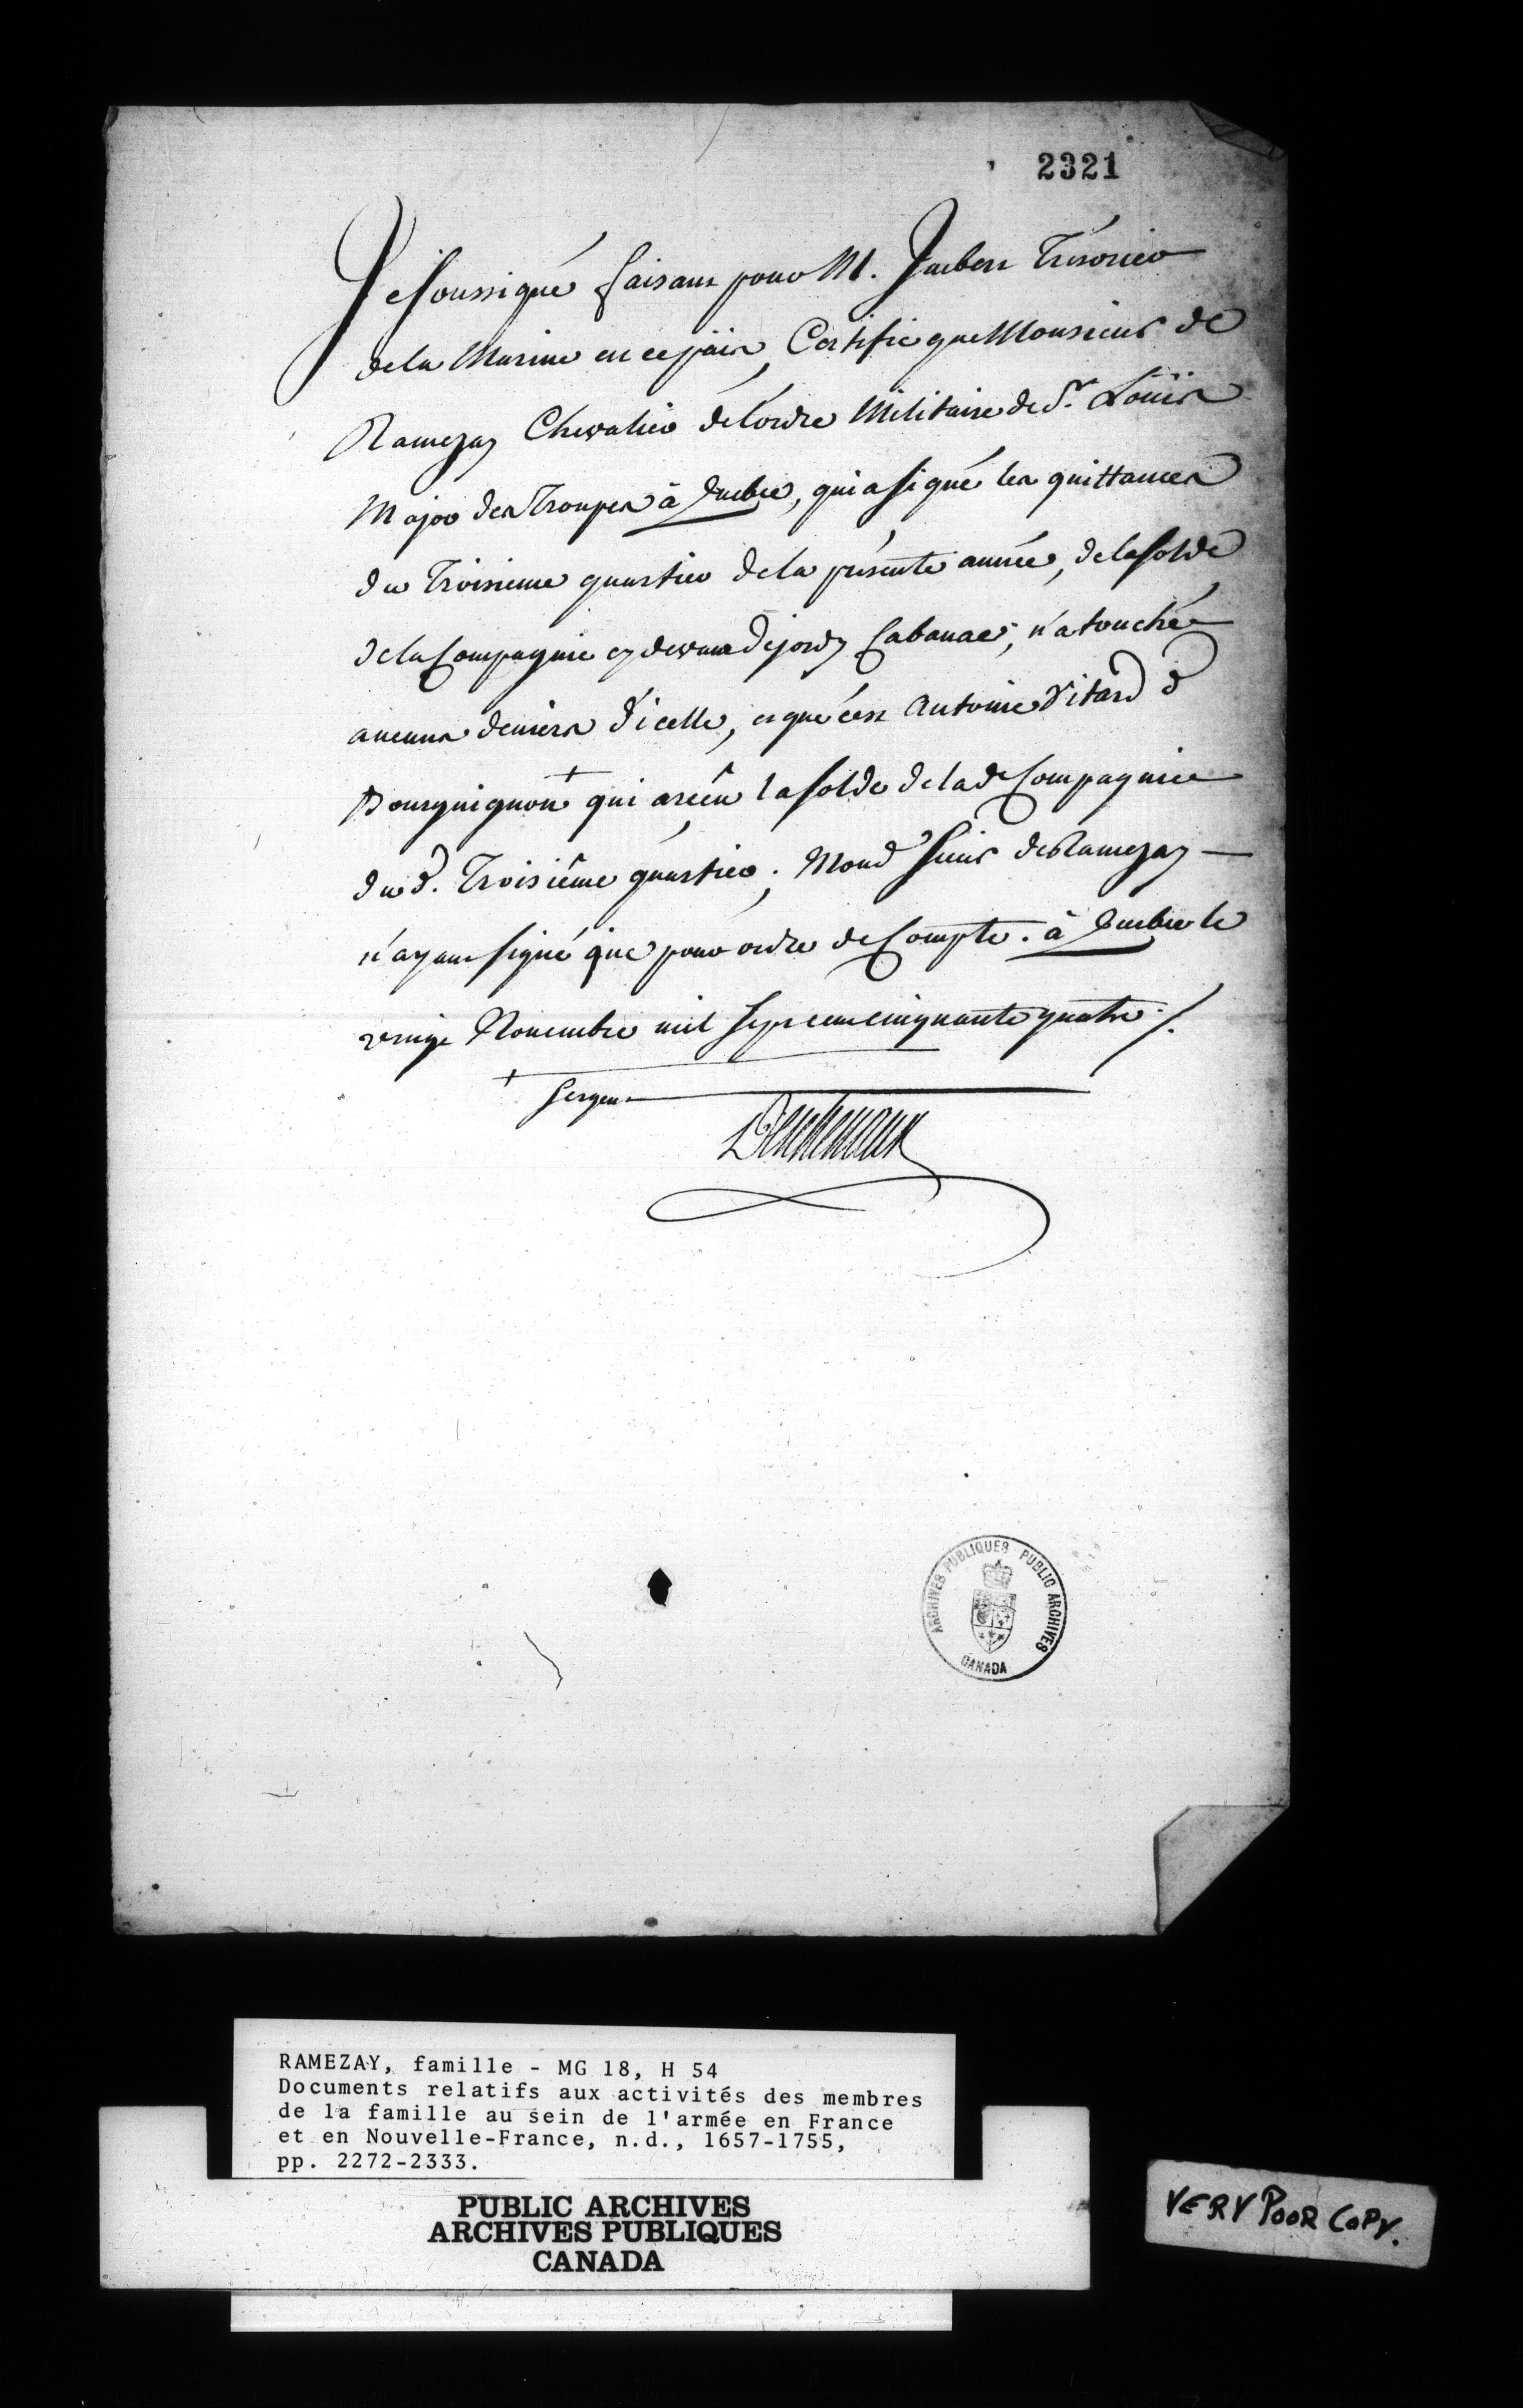 2321
Je soussigné faisant pour M. Imbert Trésorier
de la Marine en ce païs, Certifie que Monsieur de
Ramezay Chevalier de l'ordre Militaire de St. Loüis
Major des Troupes à Quebec, qui a signé les quittances
du Troisieme quartier de la présente année, de la solde
de la Compagnie cy devant Dejordy Cabanac, n'a touché
aucuns deniers d'icelle, et que c'est Antoine Vitard d
Bourguignon + qui a reçeu la solde de la de Compagnie
du d. Troisième quartier; Mond Sieur de Ramezay —
n'ayant signé que pour ordre de Compte. à Quebec le
vingt Novembre mil sept cent cinquante quatre ./.
+ Sergent
ARCHIVES PUBLIQUES PUBLIC ARCHIVES
CANADA
RAMEZAY, famille - MG 18, H 54
Documents relatifs aux activités des membres
de la famille au sein de l'armée en France
et en Nouvelle-France, n.d., 1657-1755,
pp. 2272-2333.
PUBLIC ARCHIVES
ARCHIVES PUBLIQUES
CANADA
VERY POOR COPY.